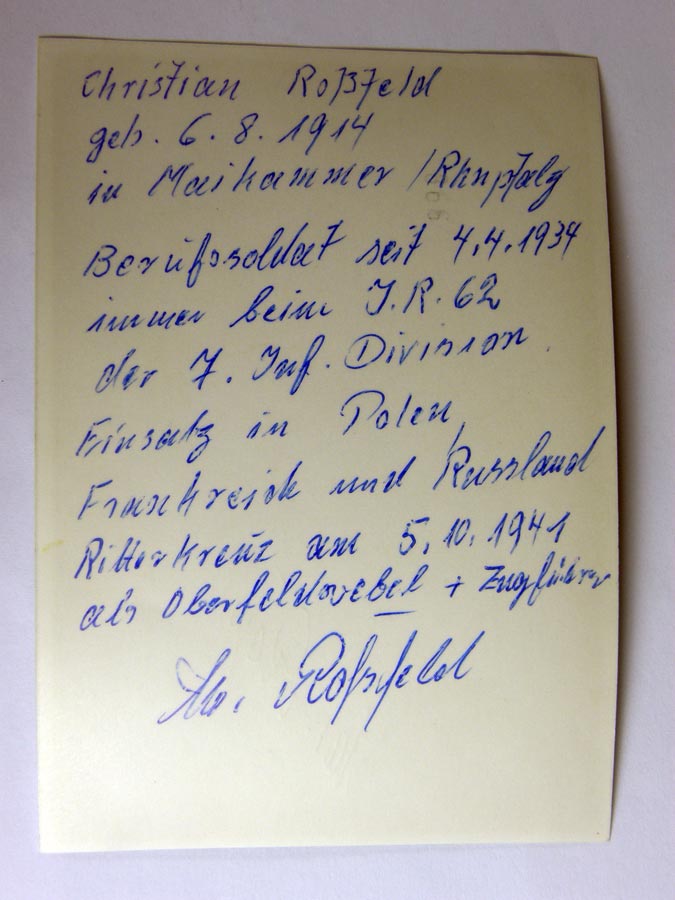 Christian Roßfeld
geb. 6. 8. 1914
in Maikammer / Rhnpfalz
Berufssoldat seit 4.4.1934
immer beim J.R. 62
der 7. Inf. Division
Einsatz in Polen,
Frankreich und Russland
Ritterkreuz am 5.10.1941
als Oberfeldwebel + Zugführer
Roßfeld